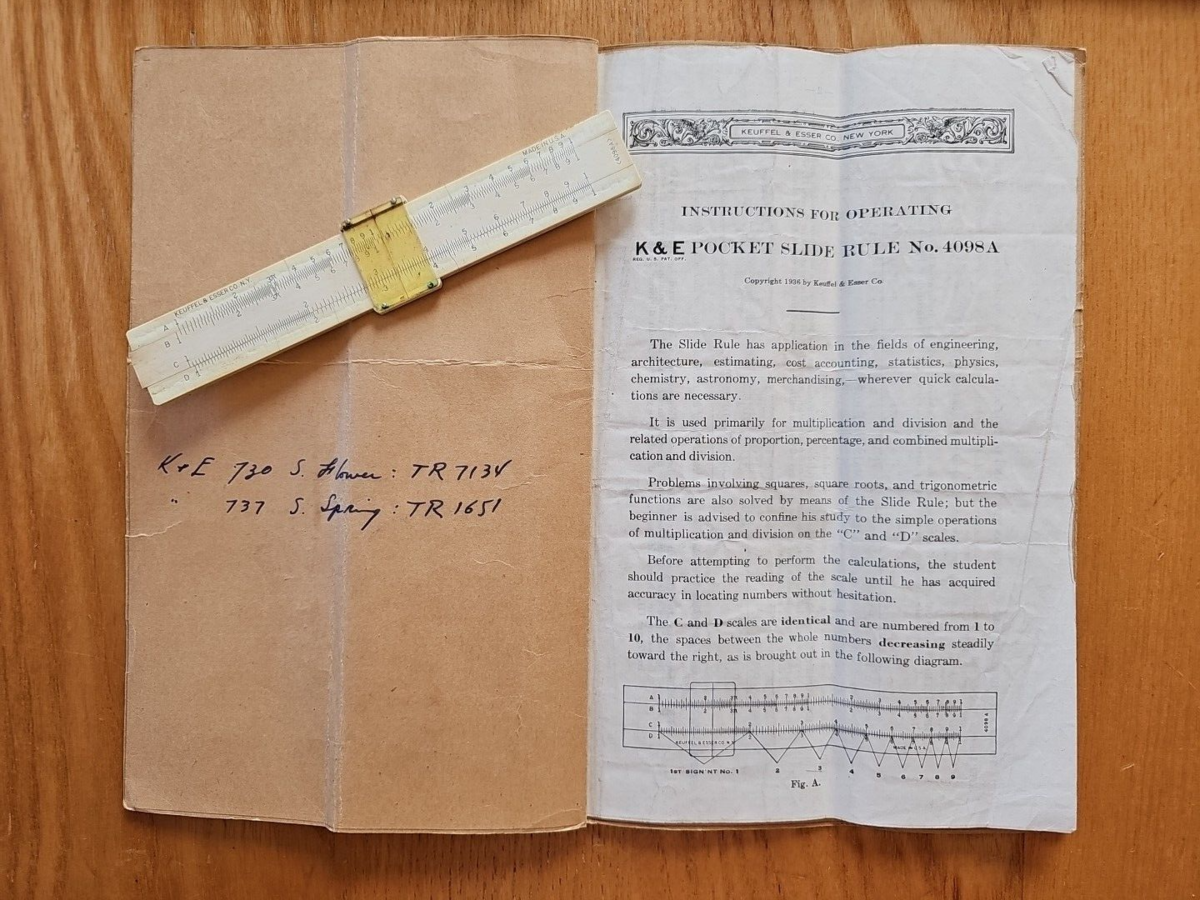 KEUFFEL & ESSER CO. N.Y.
MADE IN U.S.A.
A
B
C
D
K & E 730 S. Flower : TR 7134
" 737 S. Spring : TR 1651
KEUFFEL & ESSER CO. NEW YORK
INSTRUCTIONS FOR OPERATING
K & E POCKET SLIDE RULE No. 4098A
REG. U. S. PAT. OFF.
Copyright 1936 by Keuffel & Esser Co.
The Slide Rule has application in the fields of engineering,
architecture, estimating, cost accounting, statistics, physics,
chemistry, astronomy, merchandising,—wherever quick calcula-
tions are necessary.
It is used primarily for multiplication and division and the
related operations of proportion, percentage, and combined multipli-
cation and division.
Problems involving squares, square roots, and trigonometric
functions are also solved by means of the Slide Rule; but the
beginner is advised to confine his study to the simple operations
of multiplication and division on the "C" and "D" scales.
Before attempting to perform the calculations, the student
should practice the reading of the scale until he has acquired
accuracy in locating numbers without hesitation.
The C and D scales are identical and are numbered from 1 to
10, the spaces between the whole numbers decreasing steadily
toward the right, as is brought out in the following diagram.
A
B
C
D
KEUFFEL & ESSER CO. N.Y.
MADE IN U.S.A.
4098A
1ST SIGN'NT No. 1 2 3 4 5 6 7 8 9
Fig. A.